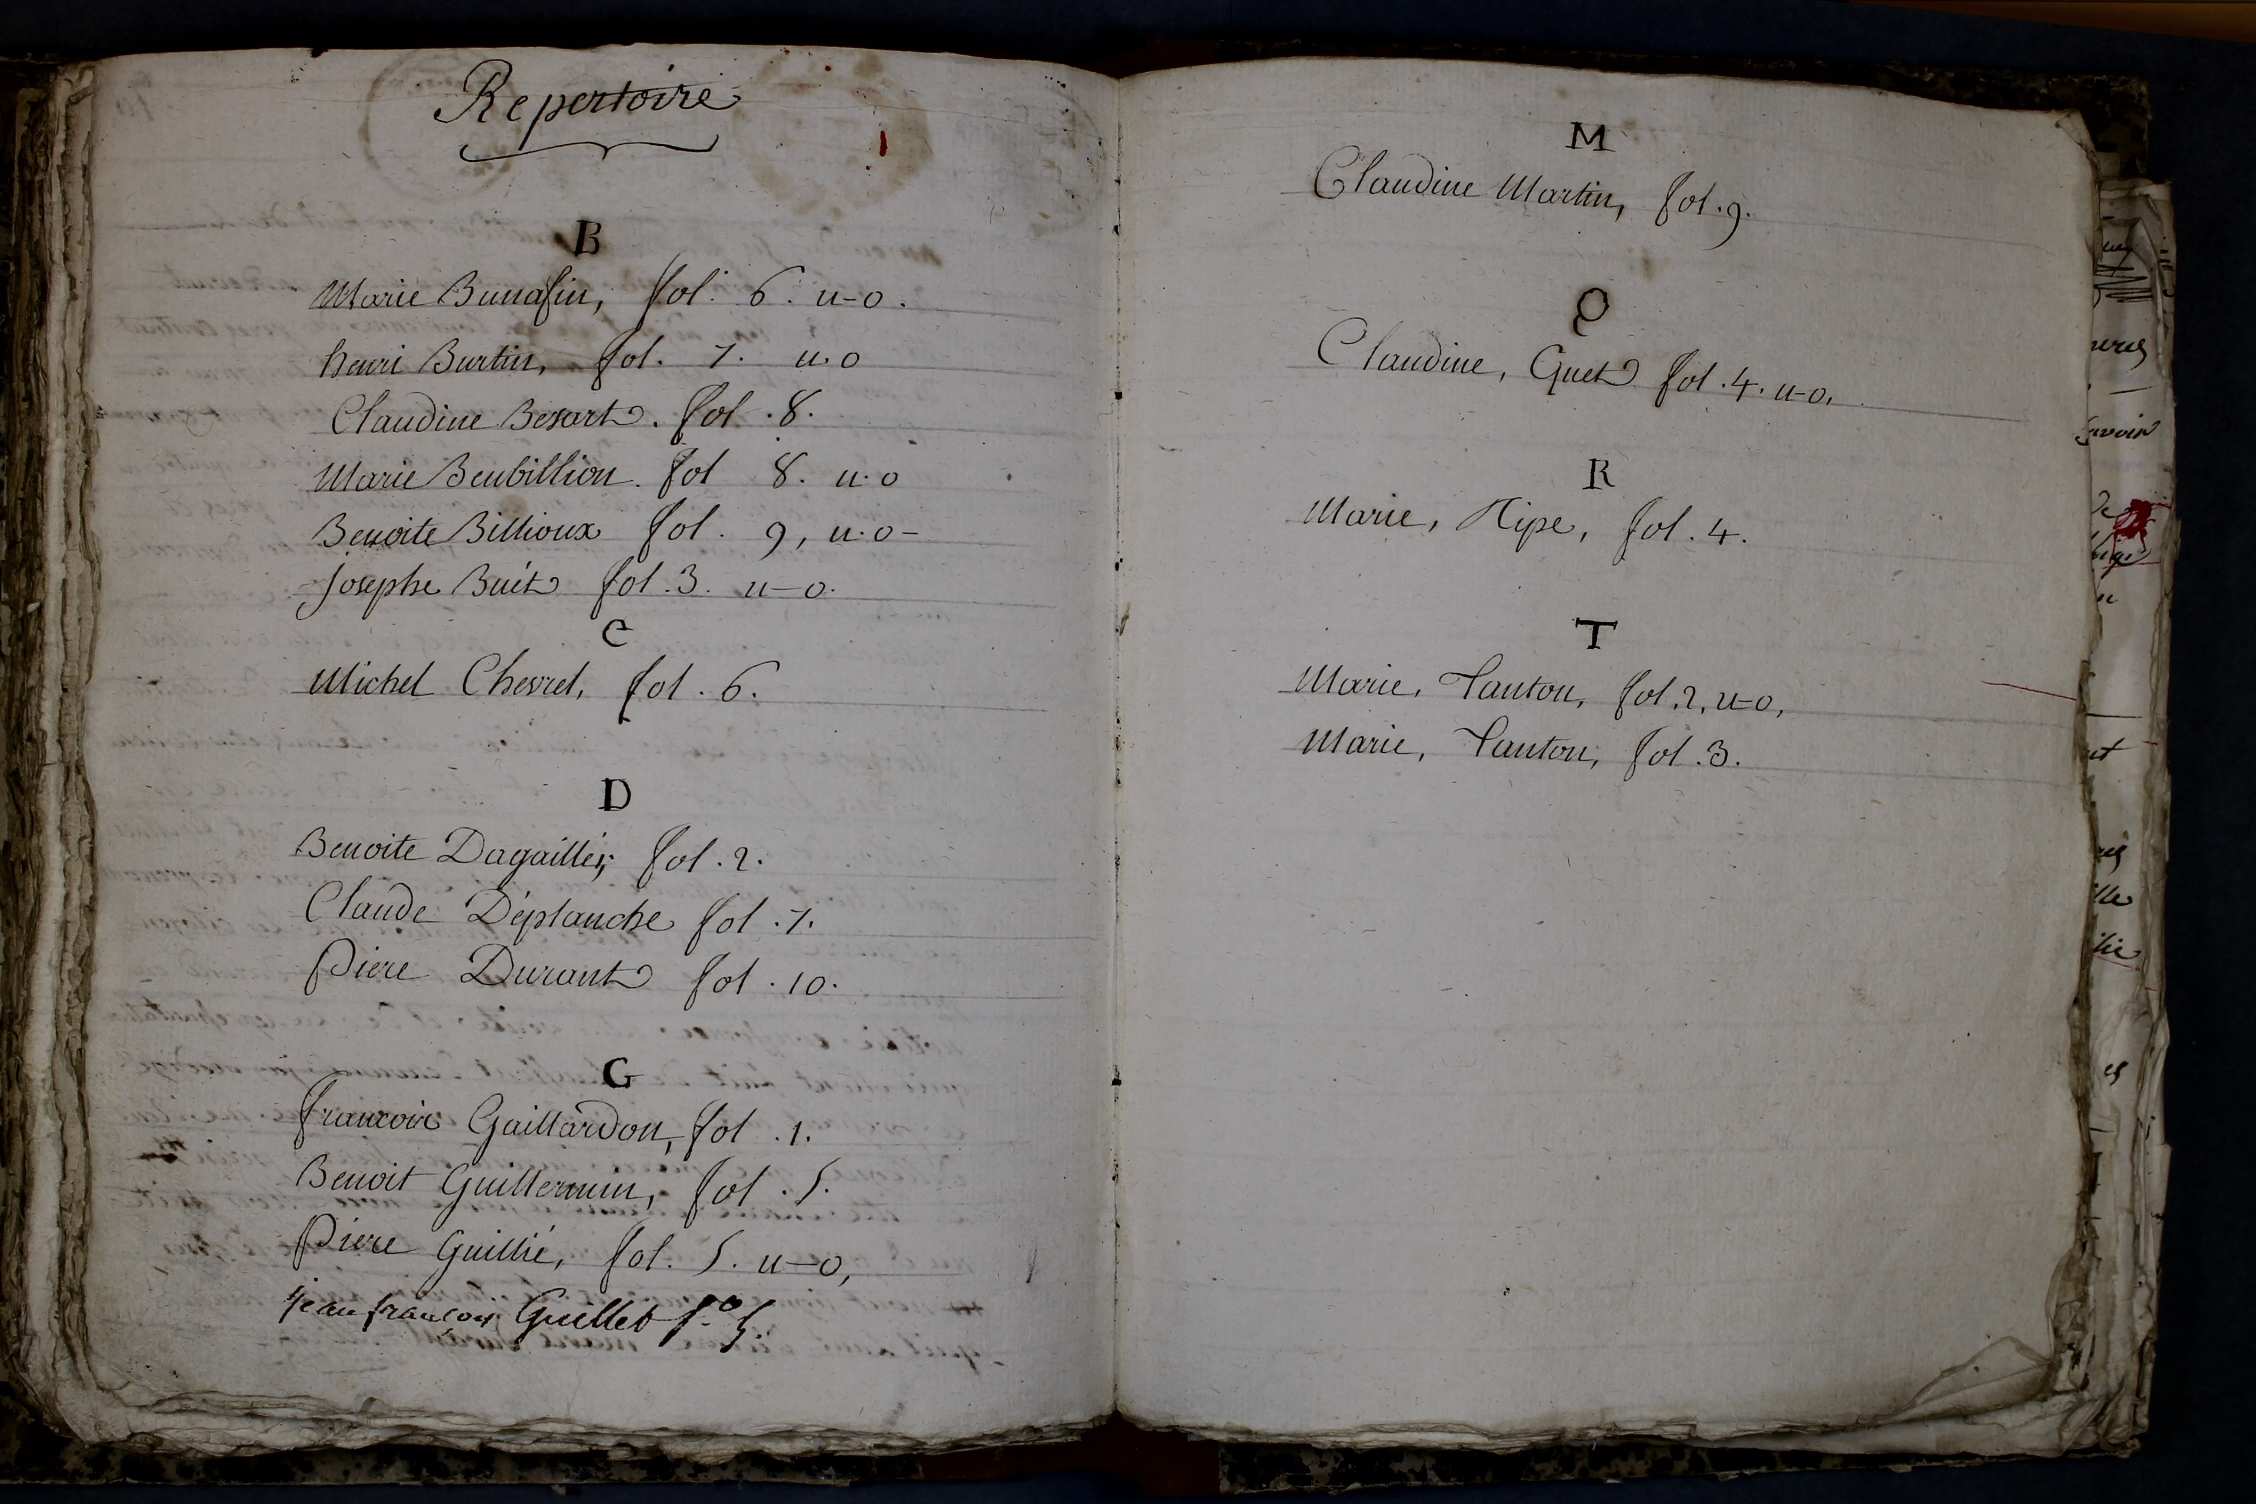 Repertoire
B
Marie Bunafin, fol. 6. u-o.
henri Burtin, fol. 7. u.o
Claudine Besart. fol. 8.
Marie Beubillion. fol 8. u.o
Benoite Billioux fol. 9, u.o-
Josephe Buét fol. 3. u-o.
C
Michel Chevrel, fol. 6.
D
Benoite Dagaillér, fol. 2.
Claude Déplanche fol. 7.
Piere Durant fol. 10.
G
francois Gaillardon, fol. 1.
Benoit Guillermin, fol. 5.
Piere Guillié, fol. 5. u-o,
jean françois Guillet f.º 5.
M
Claudine Martin, fol. 9.
Q
Claudine, Quet fol. 4. u-o.
R
Marie, Ripe, fol. 4.
T
Marie, Tanton, fol. 2, u-o,
Marie, Tanton, fol. 3.